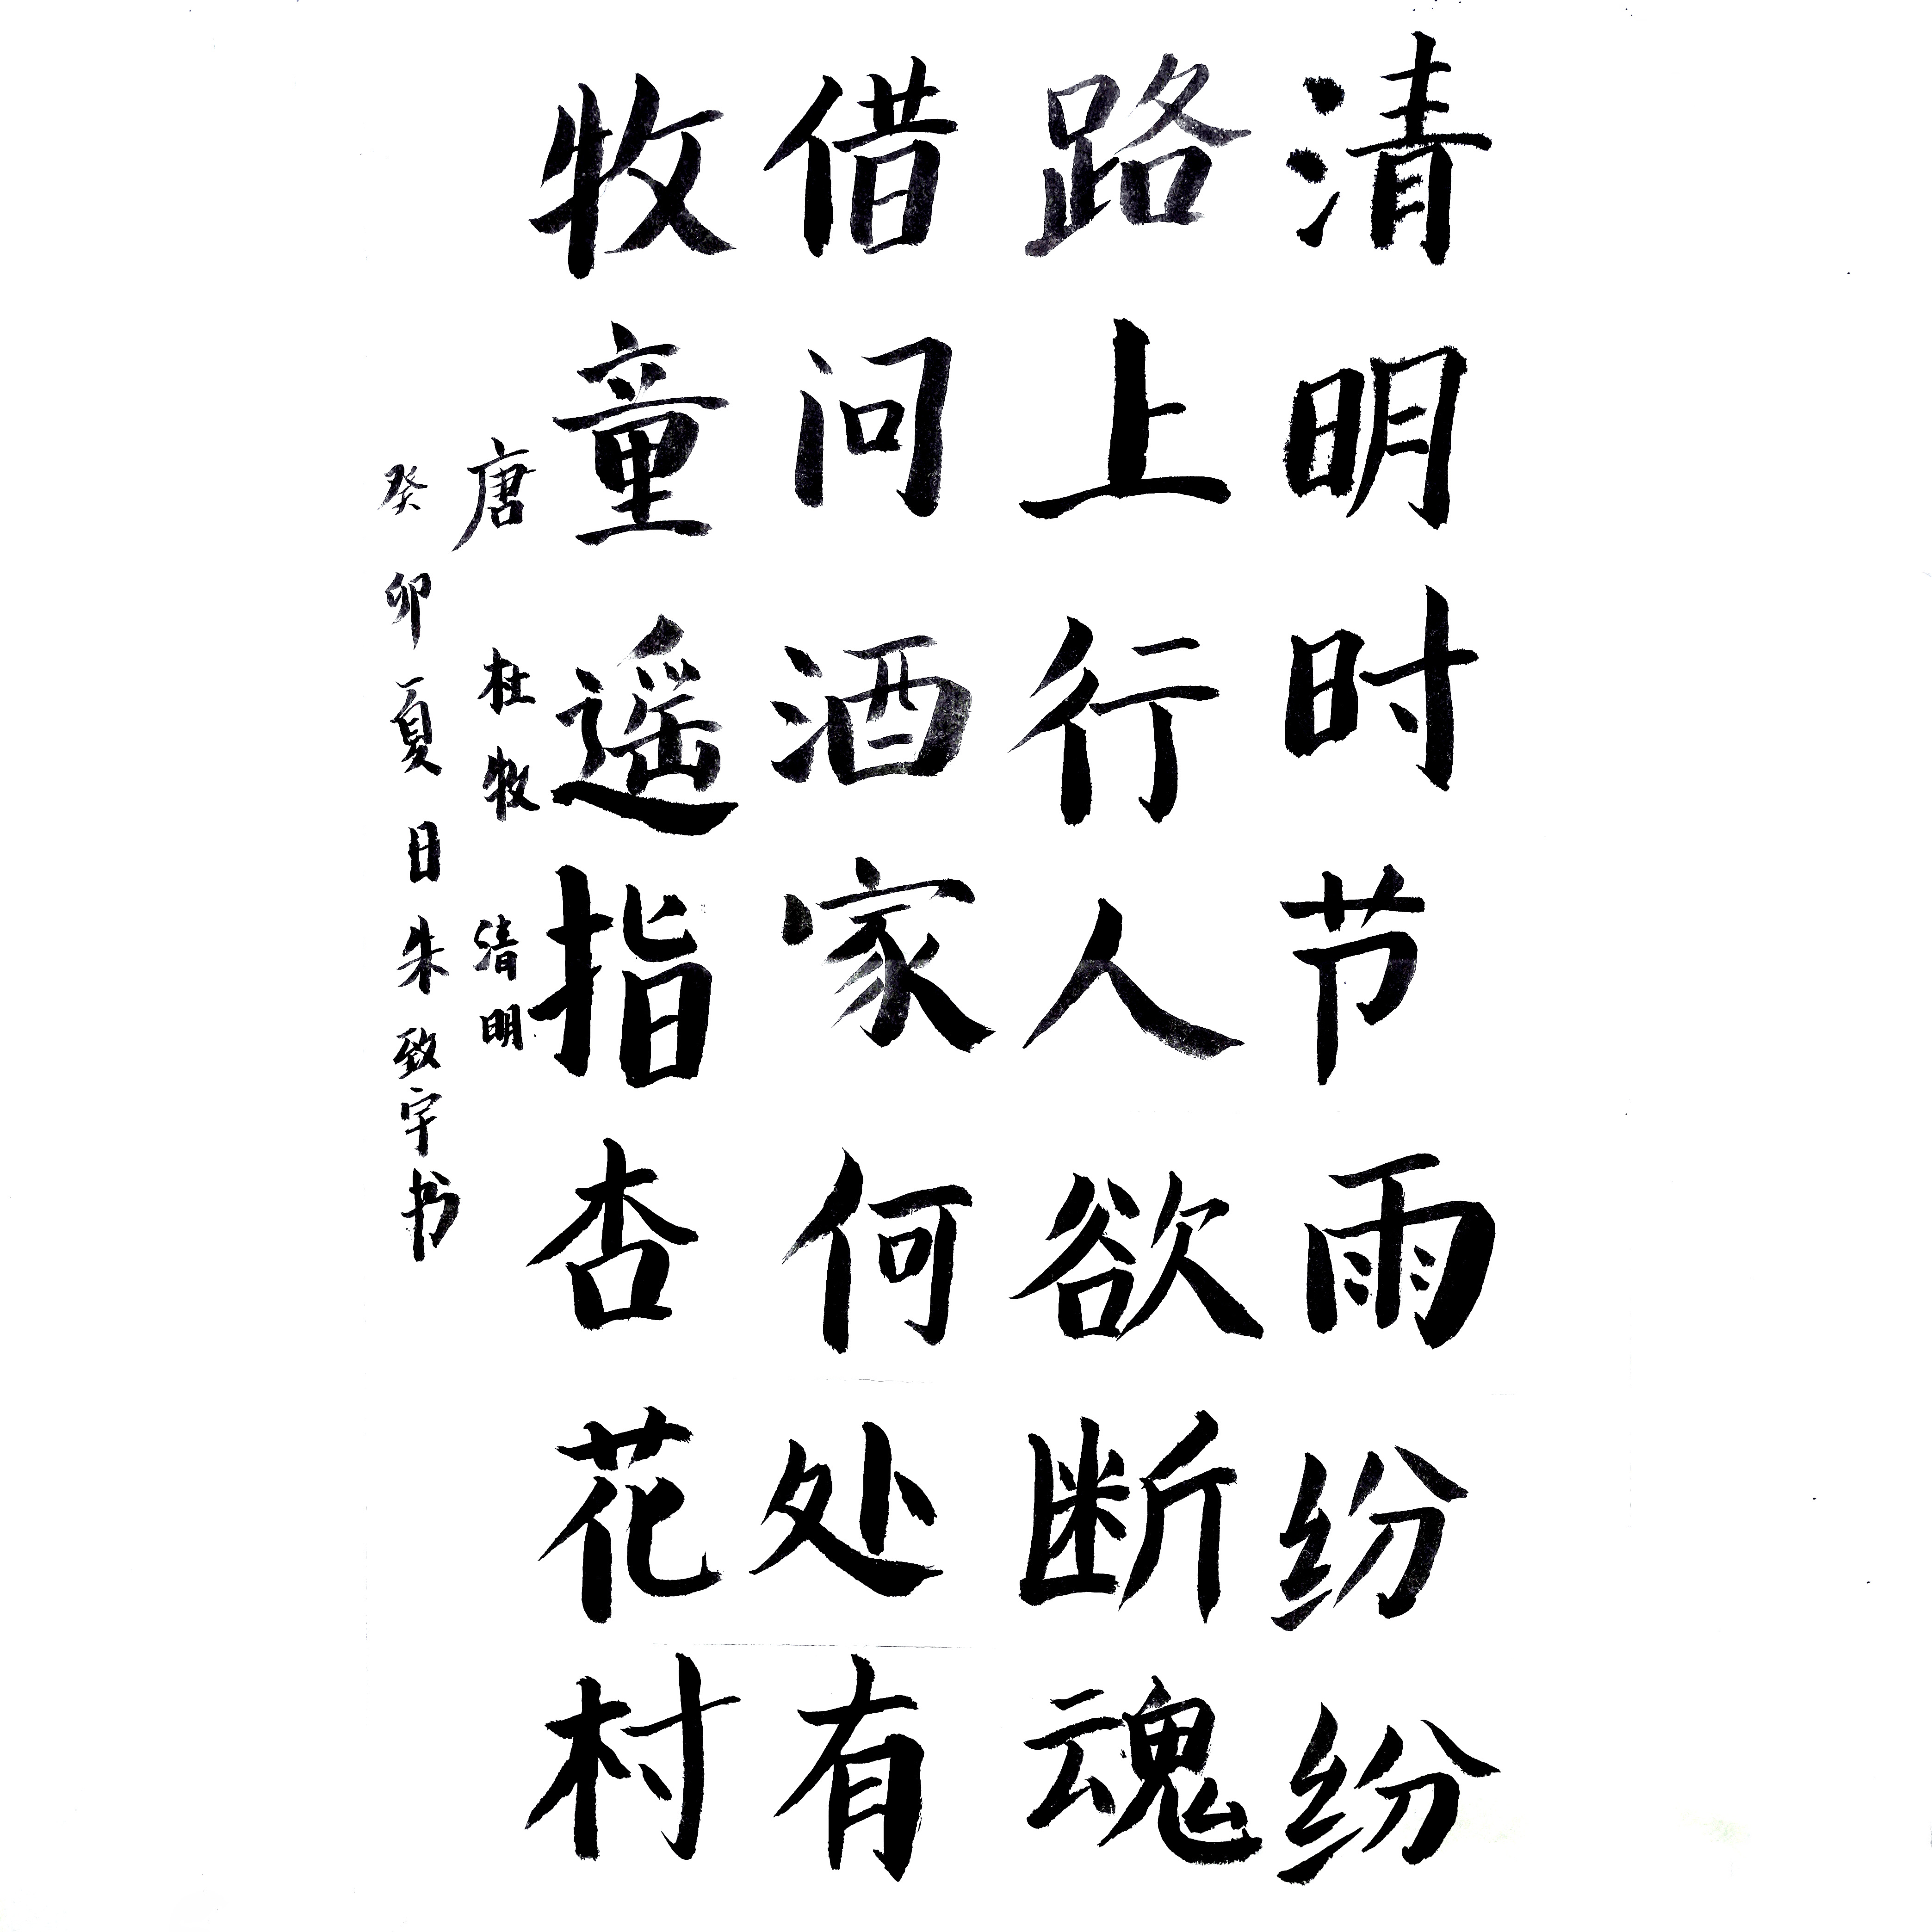 清明时节雨纷纷
路上行人欲断魂
借问酒家何处有
牧童遥指杏花村
唐 杜牧 清明
癸卯夏日朱致宇书